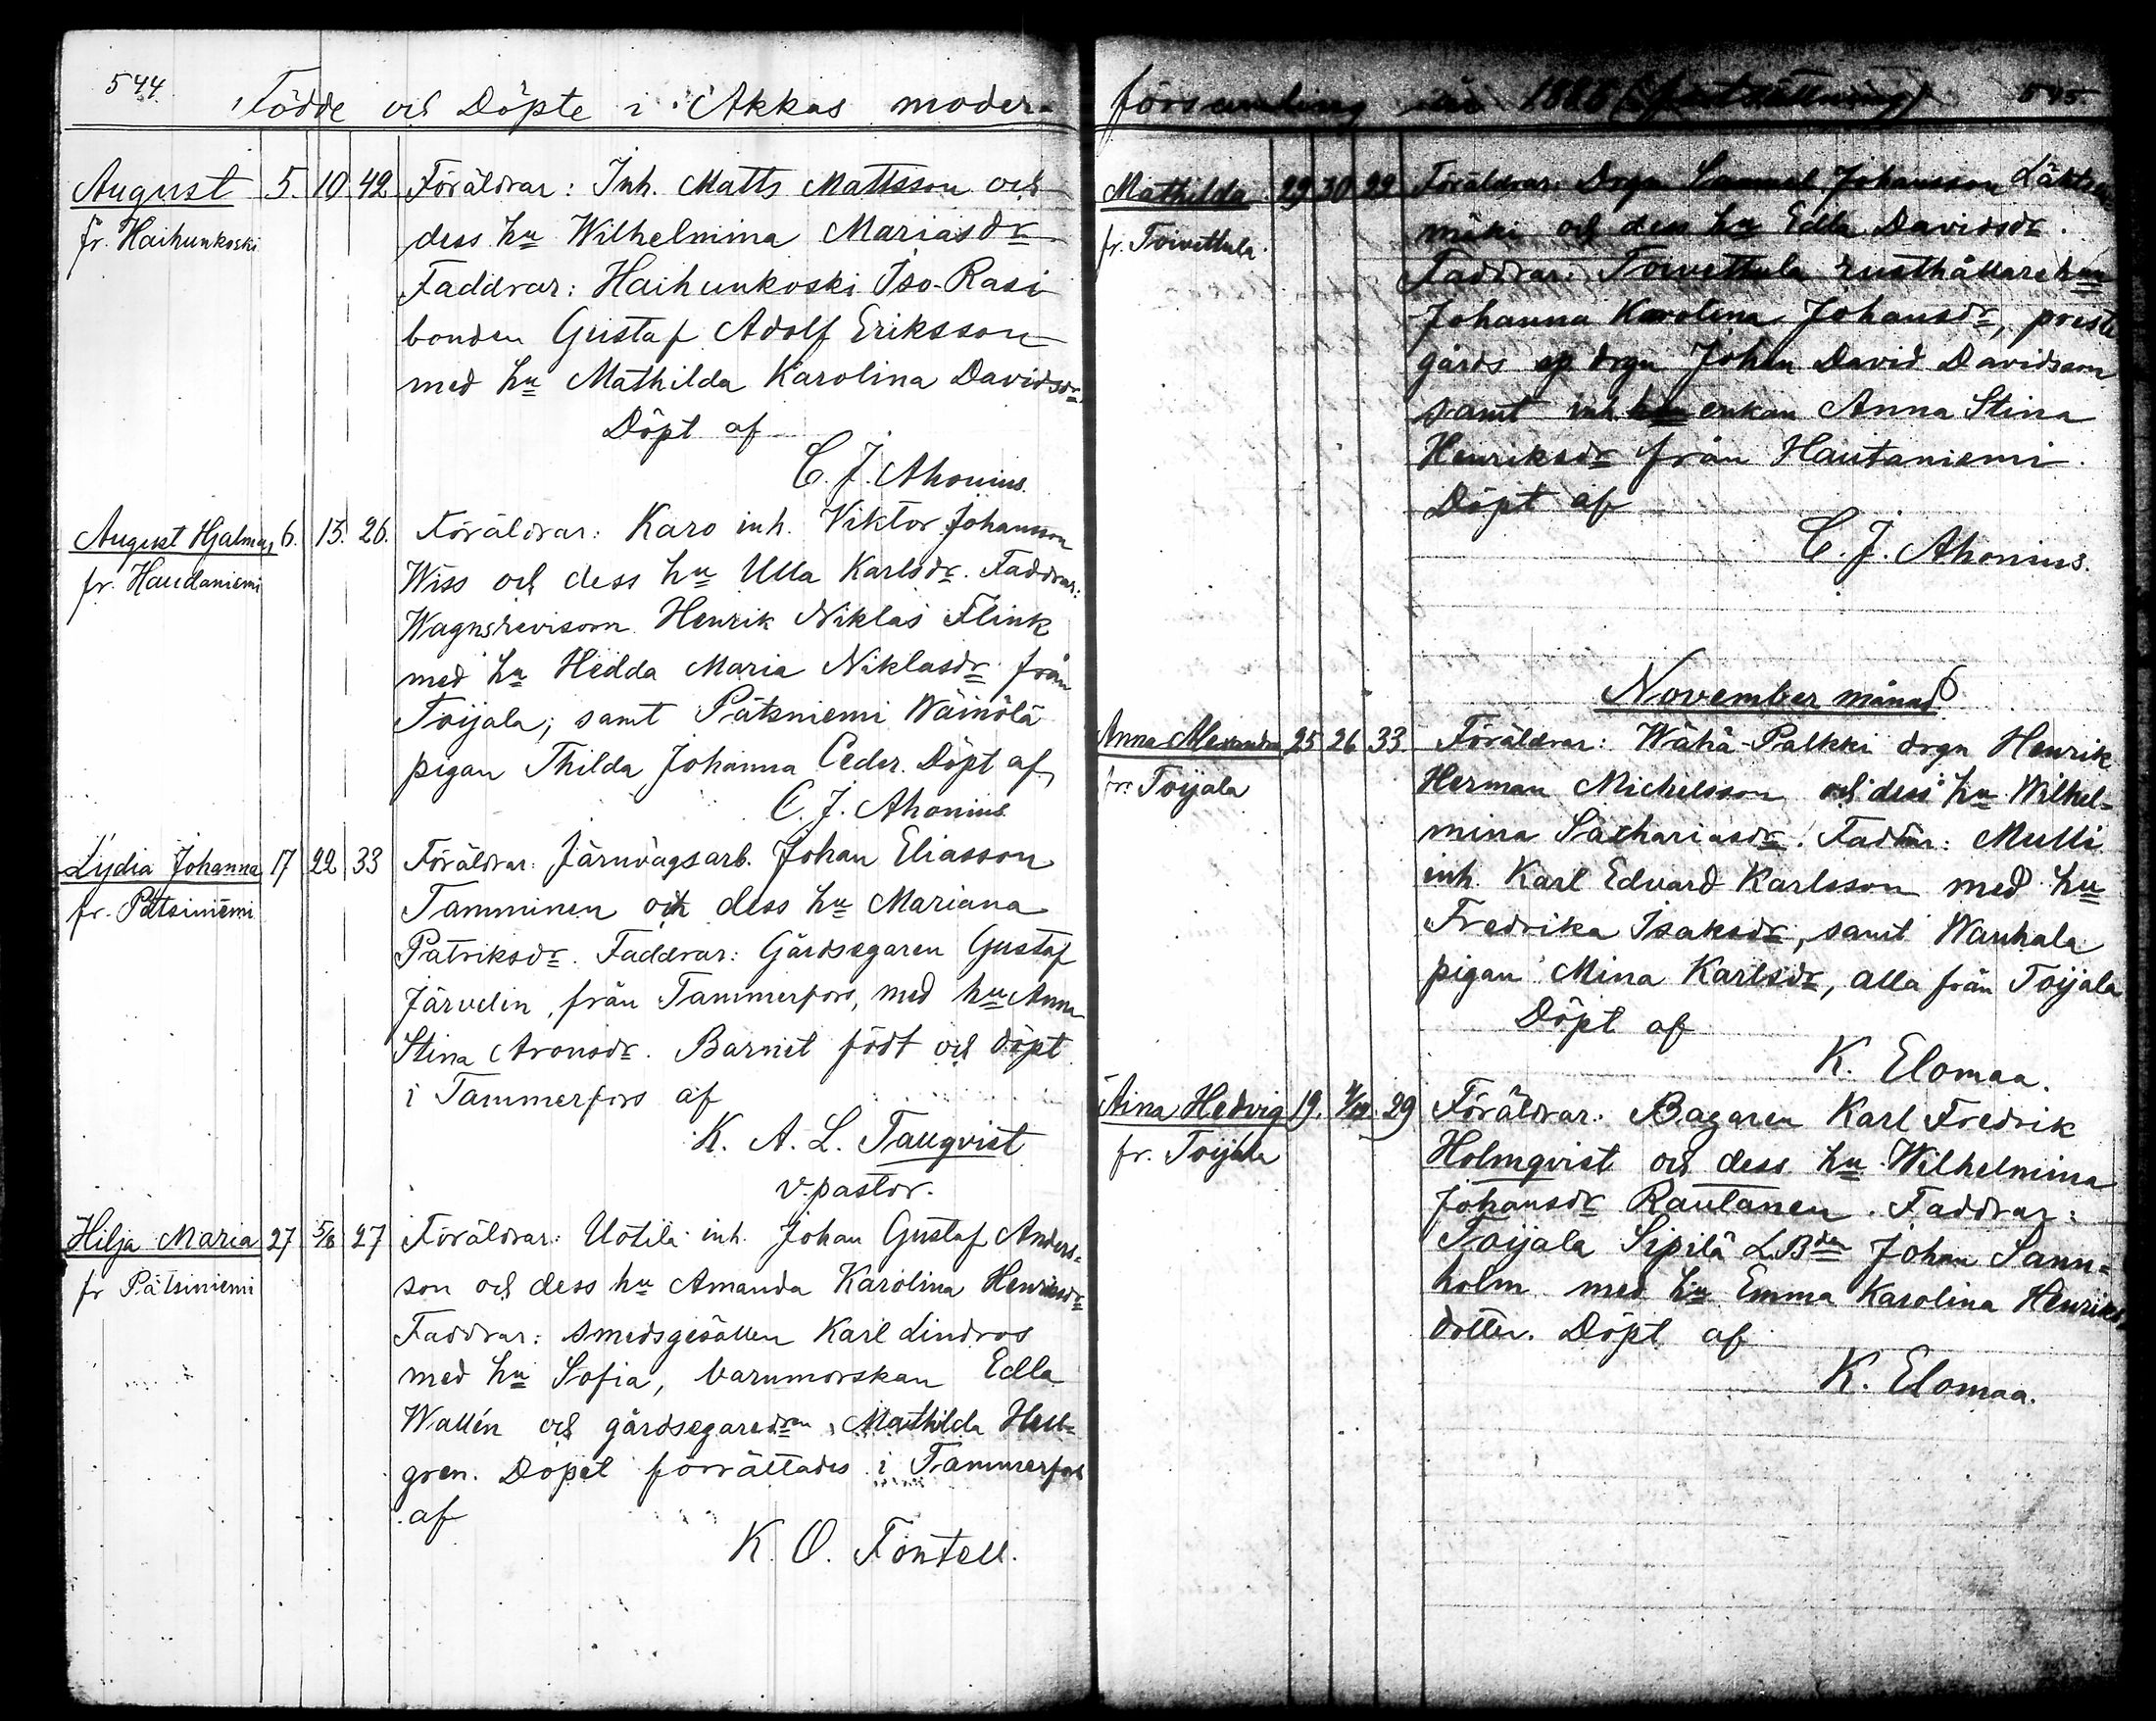 544.
Födde och Döpte i Akkas moder-
August 5. 10. 42 Föräldrar: Inh. Matts Mattsson och
fr. Haihunkoski dess hu Wilhelmina Mariasdr
Faddrar: Haihunkoski Iso-Rasi
bonden Gustaf Adolf Eriksson
med hu Mathilda Karolina Davidsdr.
Döpt af
C. J. Ahonius.
August Hjalmar 6. 13. 26. Föräldrar: Karo inh. Viktor Johansson
fr. Haudaniemi Wiss och dess hu Ulla Karlsdr. Faddrar:
Wagnsrevisorn Henrik Niklas Flink
med hu Hedda Maria Niklasdr från
Toijala; samt Pätsniemi Wäinölä
pigan Thilda Johanna Ceder. Döpt af
C. J. Ahonius
Lydia Johanna 17 22 33 Föräldrar: Järnvägsarb. Johan Eliasson
fr. Pätsiniemi Tamminen och dess hu Mariana
Patriksdr. Faddrar: Gårdsegaren Gustaf
Järvelin, från Tammerfors, med hu Anna
Stina Aronsdr. Barnet födt och döpt
i Tammerfors af
K. A. L. Tauqvist
v. pastor.
Hilja Maria 27 27 Föräldrar: Uotila inh. Johan Gustaf Anders-
fr Pätsiniemi son och dess hu Amanda Karolina Henriksdr
Faddrar: smedsgesällen Karl Lindros
med hu Sofia, barnmorskan Edla
Wallén och Mathilda Hell-
gren. Döpet förrättades i Tammerfors
af
K. O. Fontell.
församling år (fortsättning) 545.
Mathilda 29 30 22 Föräldrar: Drgn Samuel Johansson
fr. Toivettula. mäki och dess hu Edla Davidsdr.
Faddrar: Toivettula rusthållarehun
Johanna Karolina Johansdr, preste
gårds drgn Johan David Davidsson
samt inh enkan Anna Stina
Henriksdr från Hautaniemi.
Döpt af
C. J. Ahonius.
November månad
Anna Alexandra 25 26 33. Föräldrar: Wähä-Palkki drgn Henrik
fr. Toijala Herman Michelsson och dess hu Wilhel-
mina Sachariasdr. Faddrar: Mulli
inh. Karl Edvard Karlsson med hu
Fredrika Isaksdr, samt Wanhala
pigan Mina Karlsdr, alla från Toijala
Döpt af
K. Elomaa.
Aina Hedvig 19. 29 Föräldrar: Bagaren Karl Fredrik
fr. Toijala Holmqvist och dess hu Wilhelmina
Johansdr Rautanen. Faddrar:
Toijala Sipilä LBden Johan Sann-
holm med hu Emma Karolina Henriks
dotter. Döpt af
K. Elomaa.